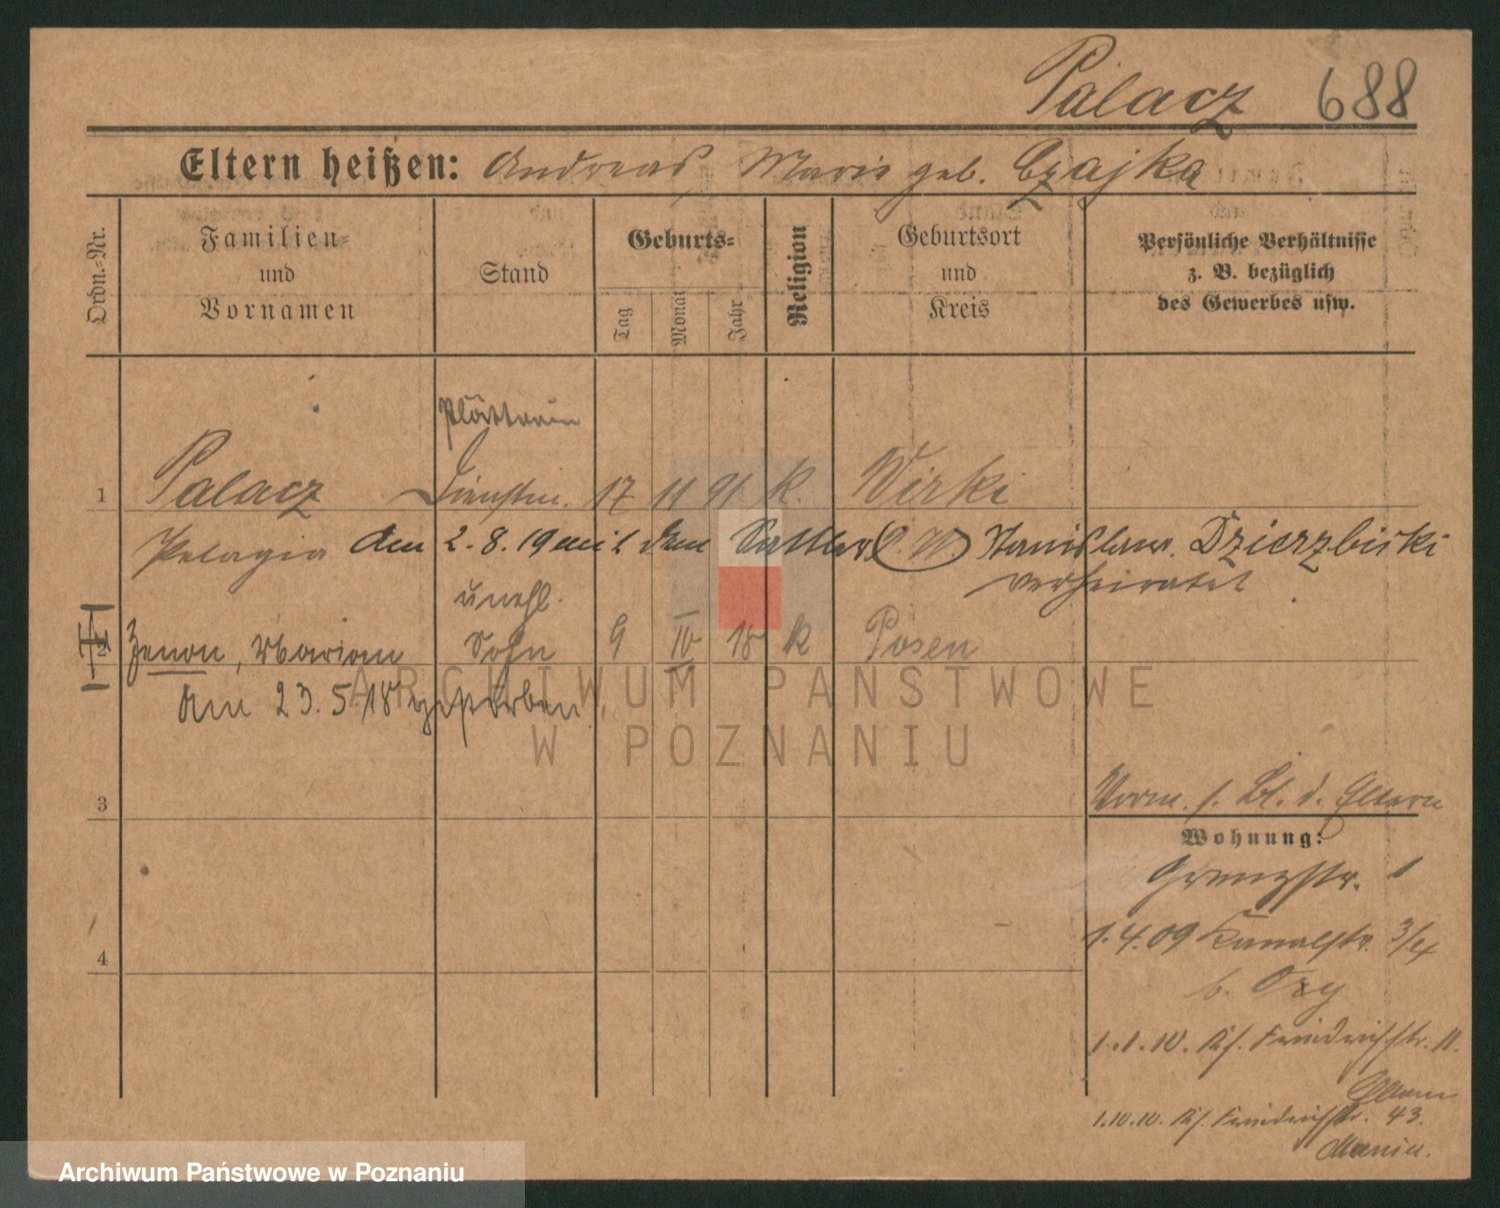 Palacz 688
Eltern heißen: Andreas, Marie geb. Czajka
Ordn.-Nr.
Familien-
und
Vornamen
Stand
Geburts-
Tag
Monat
Jahr
Religion
Geburtsort
und
Kreis
Persönliche Verhältnisse
z. B. bezüglich
des Gewerbes usw.
Plätterin
1 Palacz Dienstm. 17 11 91 k. Wirki
Pelagia den 2.8.19 mit dem Sattler Stanislaus Dzierzbicki
verheiratet
unehl.
2 Zenon, Marian Sohn 9 IV 18 k Posen
am 23.5.18 gestorben
ARCHIWUM PAŃSTWOWE
W POZNANIU
3
Vorm. s. Bl. d. Eltern
Wohnung:
Grenzstr. 1
1.4.09 Kanalstr. 3/4
4
b.
1.1.10. Kf. Friedrichstr. 11.
1.10.10. Kf. Friedrichstr. 43.
Archiwum Państwowe w Poznaniu